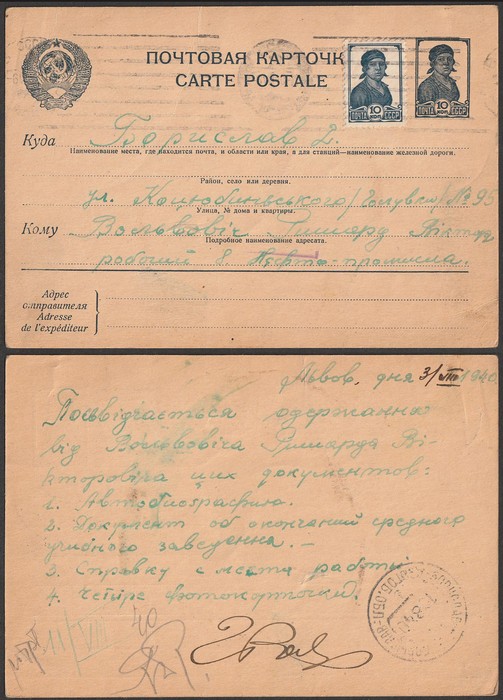 ПОЧТОВАЯ КАРТОЧК
CARTE POSTALE
10 КОП
СССР
10 КОП
СССР
Куда Борислав 2.
Наименование места, где находится почта, и области или края, а для станций—наименование железной дороги.
Район, село или деревня.
ул. Коцюбинського /Голувки/ № 95
Улица, № дома и квартиры.
Кому Вольвовіч Ришард Віктор
Подробное наименование адресата.
рабочий 8. Нефте-промисла.
Адрес
отправителя
Adresse
de l'expéditeur
Львов, дня 31/VII 1940
Посвідчається одержання
від Вольвовіча Ришарда Ві-
кторовіча цих документов:
1. Автобиографию.
2. Документ об окончаний среднего
учибного заведения. —
3. Справку с места работы
4. Четіре фотокарточки.
11/VIII
40